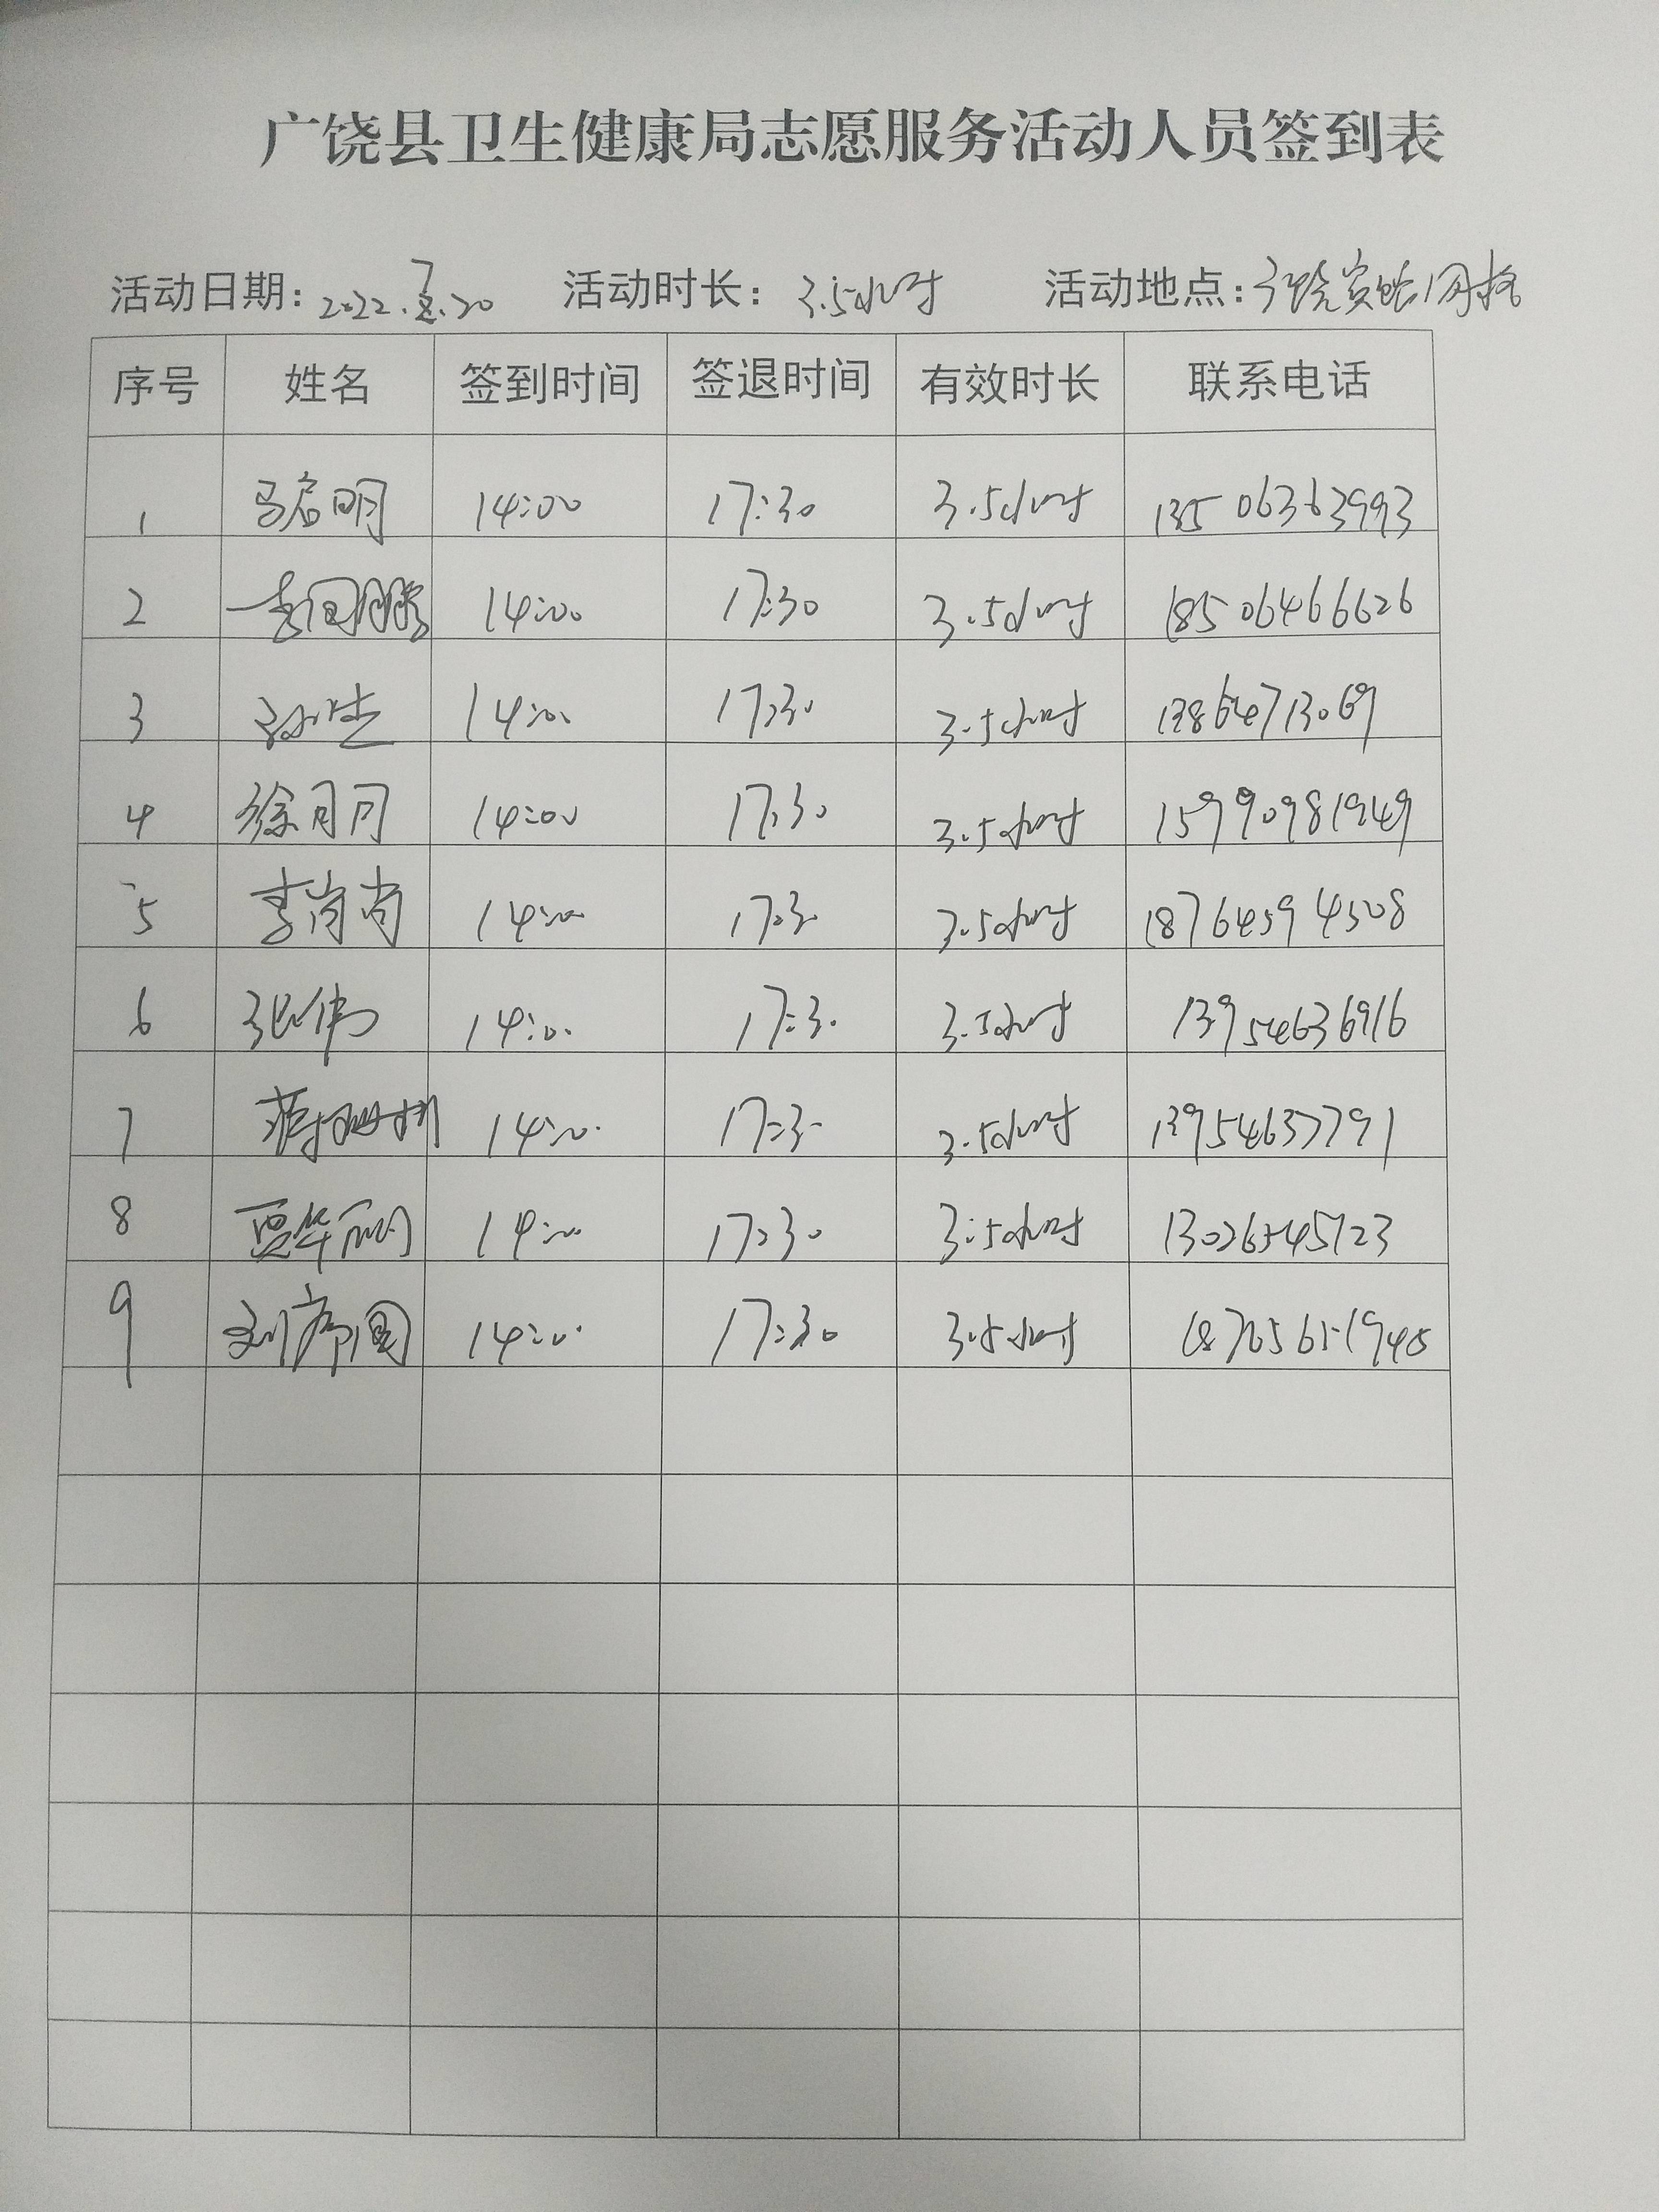 广饶县卫生健康局志愿服务活动人员签到表
活动日期：2022.7.20 活动时长：3.5小时 活动地点：网格
序号 姓名 签到时间 签退时间 有效时长 联系电话
1 马启明 14:00 17:30 3.5小时 13506363993
2 李国鹏 14:00 17:30 3.5小时 18506466626
3 14:00 17:30 3.5小时
4 徐月月 14:00 17:30 3.5小时 15990981949
5 李尚尚 14:00 17:30 3.5小时 18764594508
6 张伟 14:00 17:30 3.5小时 13954636916
7 14:00 17:30 3.5小时 13954637791
8 14:00 17:30 3.5小时
9 14:00 17:30 3.5小时